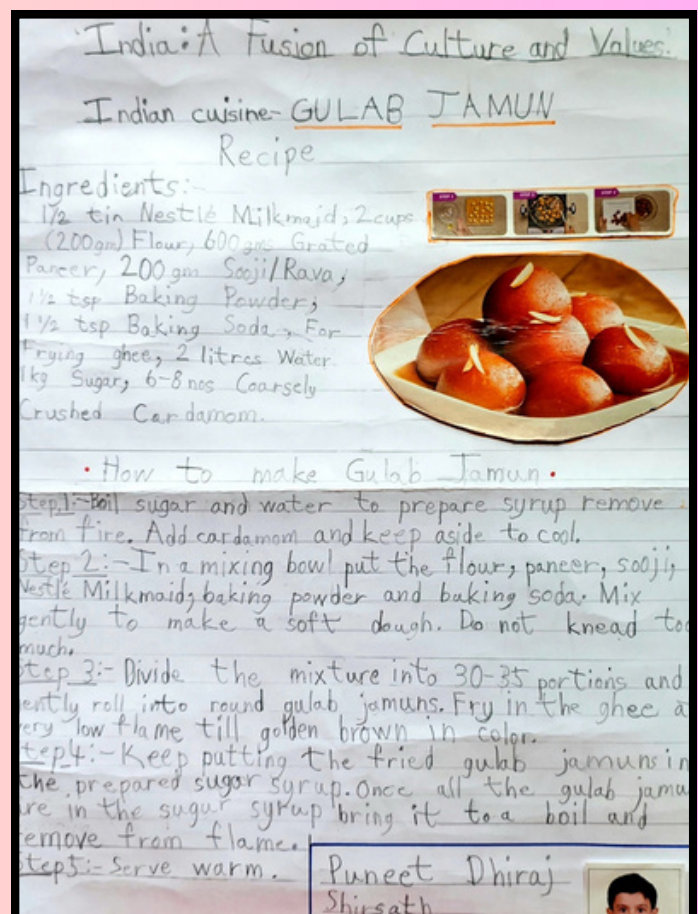 'India: A Fusion of Culture and Values.'
Indian cuisine- GULAB JAMUN
Recipe
Ingredients:-
1½ tin Nestlé Milkmaid, 2 cups
(200gm) Flour, 600 gms Grated
Paneer, 200 gm Sooji/Rava,
1½ tsp Baking Powder,
1½ tsp Baking Soda, For
Frying ghee, 2 litres Water
1kg Sugar, 6-8 nos Coarsely
Crushed Cardamom.
• How to make Gulab Jamun •
Step 1:- Boil sugar and water to prepare syrup remove
from fire. Add cardamom and keep aside to cool.
Step 2:- In a mixing bowl put the flour, paneer, sooji,
Nestlé Milkmaid, baking powder and baking soda. Mix
gently to make a soft dough. Do not knead too
much.
Step 3:- Divide the mixture into 30-35 portions and
ently roll into round gulab jamuns. Fry in the ghee a
ery low flame till golden brown in color.
Step4:- Keep putting the fried gulab jamuns in
the prepared sugar syrup. Once all the gulab jamu
re in the sugar syrup bring it to a boil and
emove from flame.
Step5:- Serve warm.
Puneet Dhiraj
Shirsath